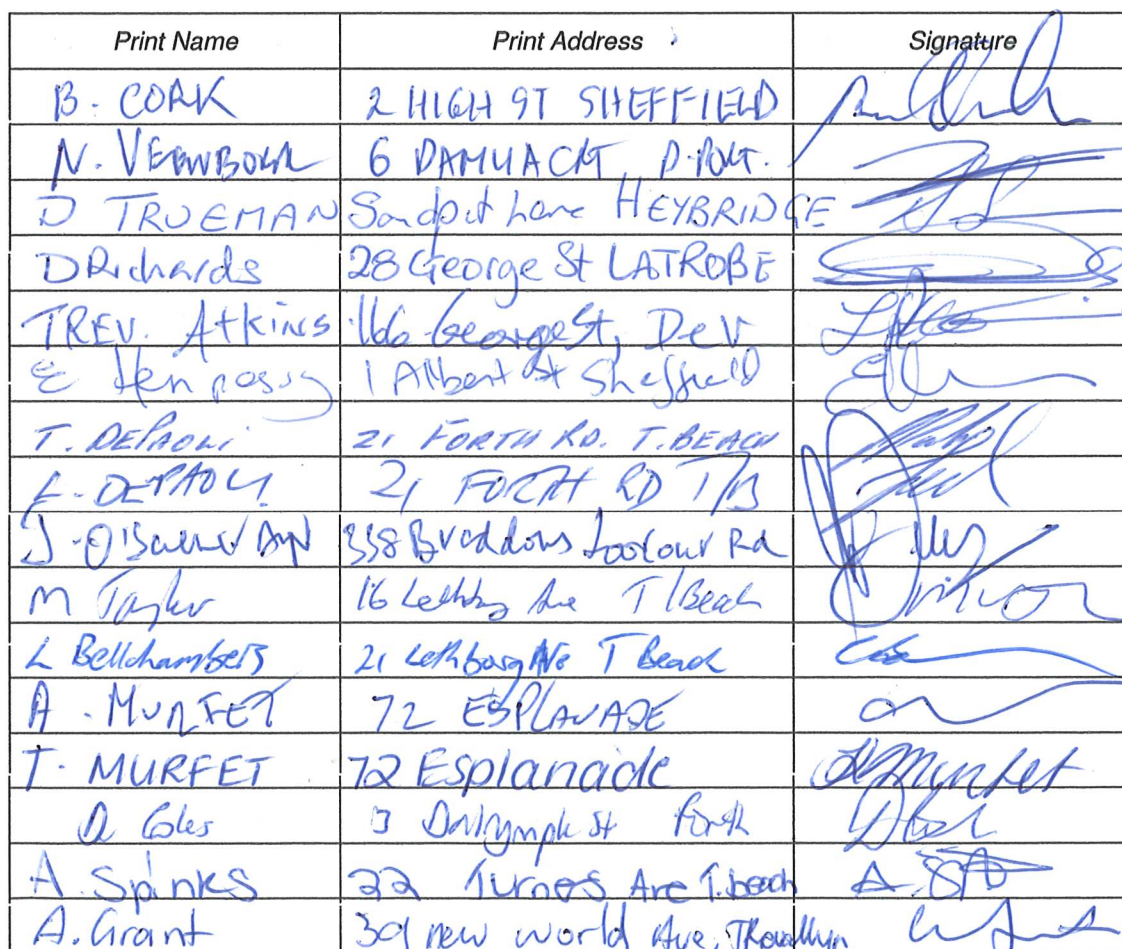 Print Name Print Address Signature
B. CORK 2 HIGH ST SHEFFIELD
N. 6 D.PORT.
D TRUEMAN Sandpit Lane HEYBRIDGE
D Richards 28 George St LATROBE
TREV. Atkins 166 George St, Dev
E Hennessy 1 Albert St Sheffield
T. DEPAOLI 21 FORTH RD. T.BEACH
L. DEPAOLI 21 FORTH RD T/B
J. 358 Braddons Lookout Rd
M Taylor 16 Ave T/Beach
L Bellchambers 21 Ave T Beach
A. MURFET 72 ESPLANADE
T. MURFET 72 Esplanade Murfet
D Coles Dalrymple St Forth
A. Spinks 22 Turners Ave T.beach
A. Grant 39 new world Ave, Trevallyn